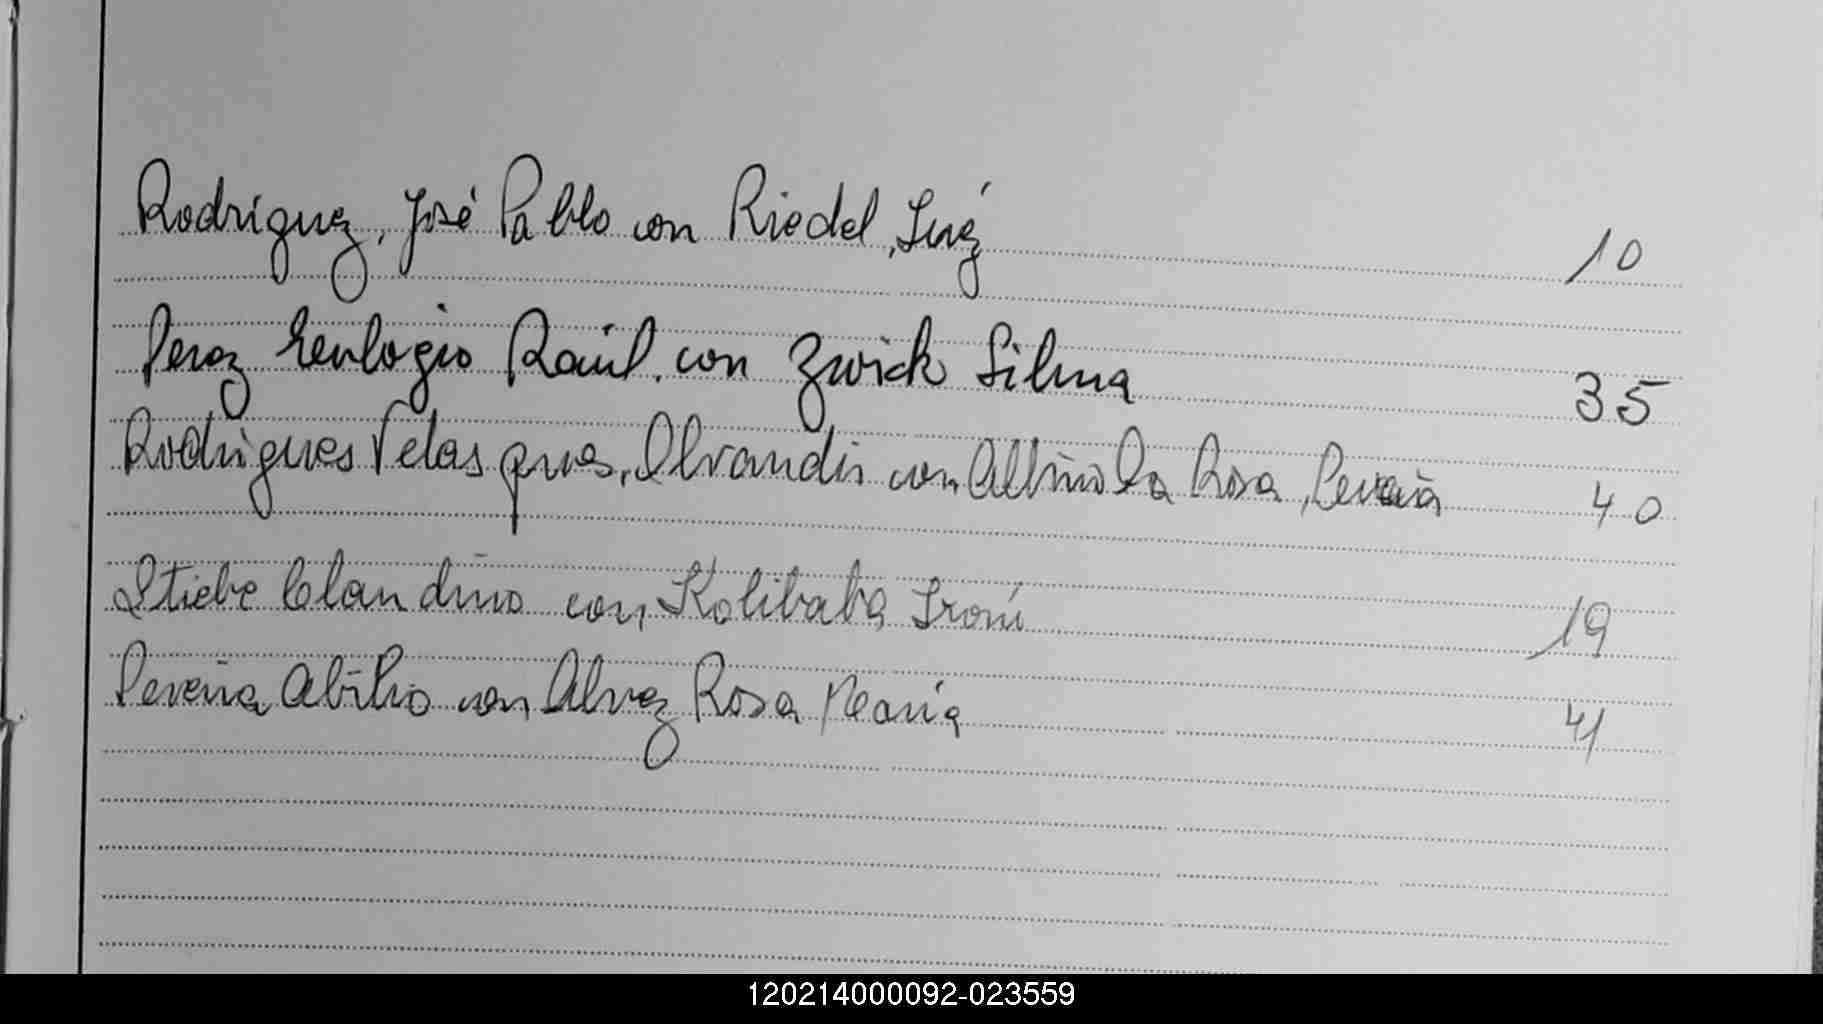 Rodriguez, José Pablo con Riedel, Luz 10
Perez Eulogio Raúl con Zwick Silma 35
Rodrigues Velasques, con Albino Da Rosa, 40
Stiebe Claudino con Kolibaba Ironi 19
Pereira Abilio con Alvez Rosa Maria 41
120214000092-023559